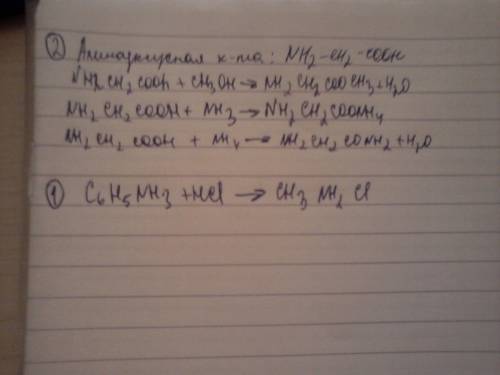 ② Аминоуксусная к-та: NH2-CH2-COOH
NH2 CH2 COOH + CH3OH → NH2 CH2 COO CH3 + H2O
NH2 CH2 COOH + NH3 → NH2 CH2 COONH4
NH2 CH2 COOH + NH4 → NH2 CH2 CO NH2 + H2O
① C6H5 NH3 + HCl → CH3 NH2 Cl